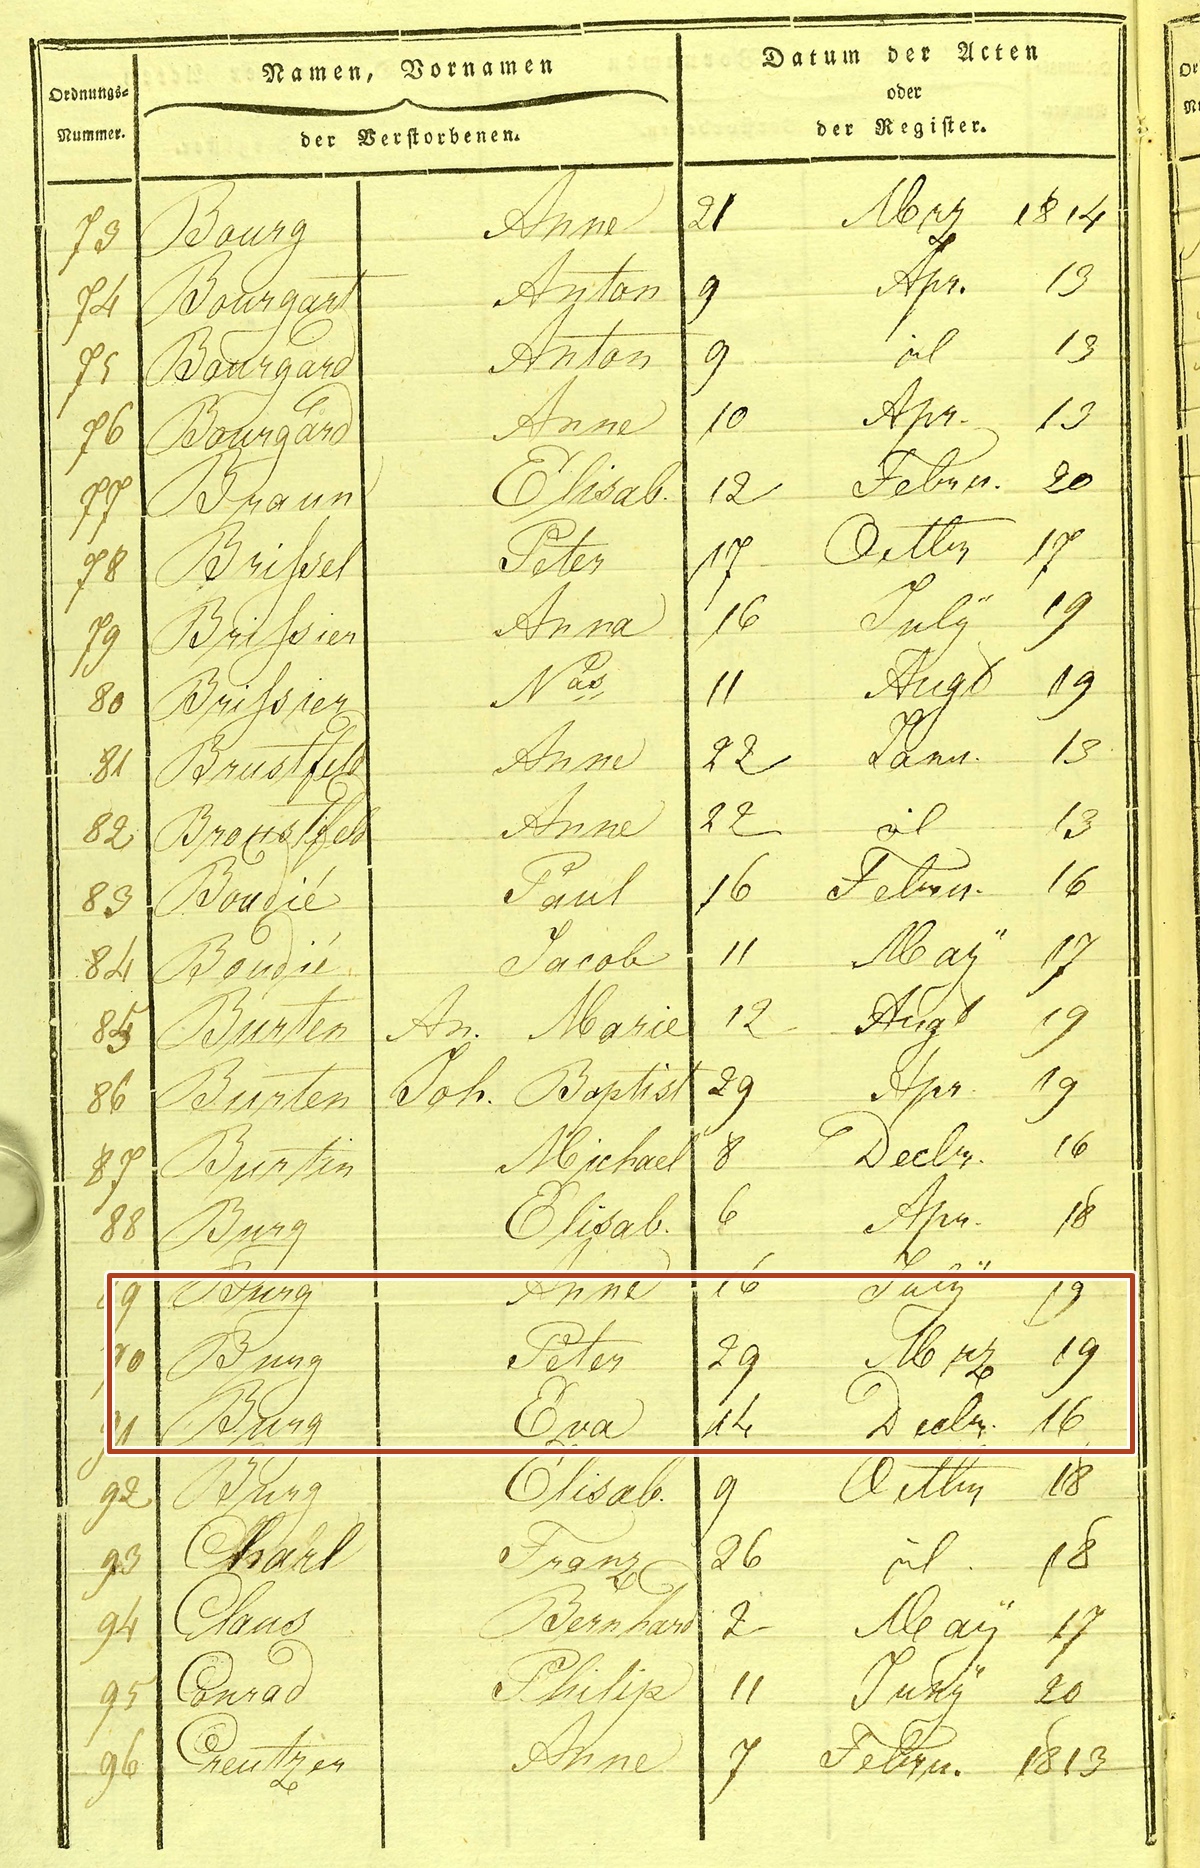 Ordnungs=Nummer. Namen, Vornamen der Verstorbenen. Datum der Acten oder der Register.
73 Bourg Anne 21 Mrz 1814
74 Bourgart Anton 9 Apr. 13
75 Bourgard Anton 9 id 13
76 Bourgard Anne 10 Apr. 13
77 Braun Elisab. 12 Febru. 20
78 Brissel Peter 17 Octbr 17
79 Brissier Anna 16 July 19
80 Brissier Nas 11 Augt 19
81 Brustfeld Anne 22 Janu. 13
82 Broustfeld Anne 22 id 13
83 Boudié Paul 16 Febru. 16
84 Boudié Jacob 11 May 17
85 Burten An. Marie 12 Augt 19
86 Burten Joh. Baptist 29 Apr. 19
87 Burtin Michael 8 Decbr. 16
88 Burg Elisab. 6 Apr. 18
89 Burg Anne 16 July 19
90 Burg Peter 29 Mrz 19
91 Burg Eva 14 Decbr. 16
92 Burg Elisab. 9 Octbr 18
93 Charl Franz 26 id. 18
94 Claus Bernhard 2 May 17
95 Conrad Philip 11 Juny 20
96 Creutzer Anne 7 Febru. 1813